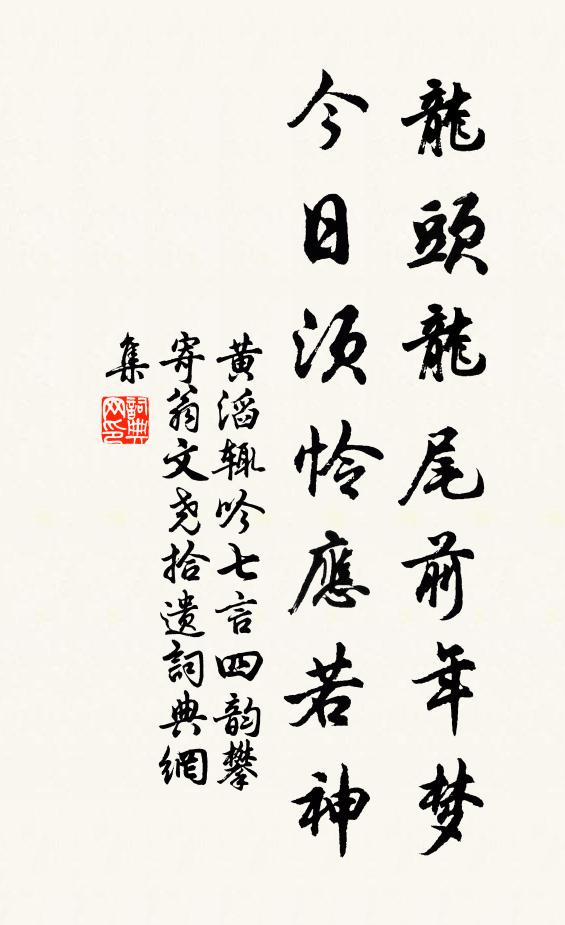 龍頭龍尾前年梦
今日須怜應若神
黄滔辄吟七言四韵攀
寄翁文尧拾遗詞典網
集
詞典
网印